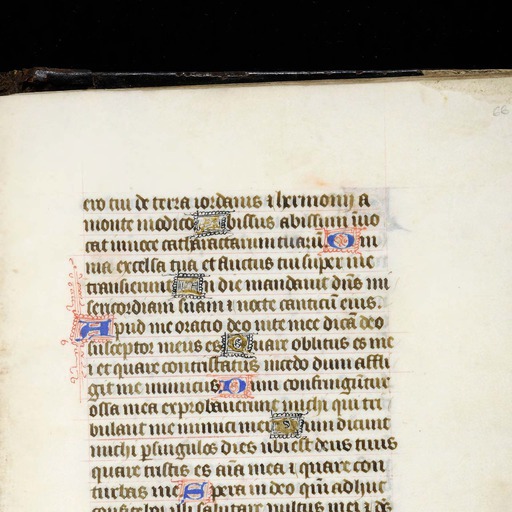 66
ero tui de terra iordanis ⁊ hermonij a
monte modico Abissus abissum īuo
cat in uoce catharactarum tuarū Om
nia excelsa tua et fluctus tui super me
transierunt In die mandauit dn̄s mi
sericordiam suam ⁊ nocte canticū eius
Apud me oratio deo uite mee dicā deo
susceptor meus es Quare oblitus es me
⁊ et quare contristatus incedo dum affli
git me inimicus Dum confringūtur
ossa mea exprobauerunt michi qui tri
bulant me inimici mei Dum dicunt
michi p singulos dies ubi est deus tuus
quare tristis es aīa mea ⁊ quare con
turbas me Spera in deo qm̄ adhuc
confitebor illi salutare uultus mei ⁊ ds̄